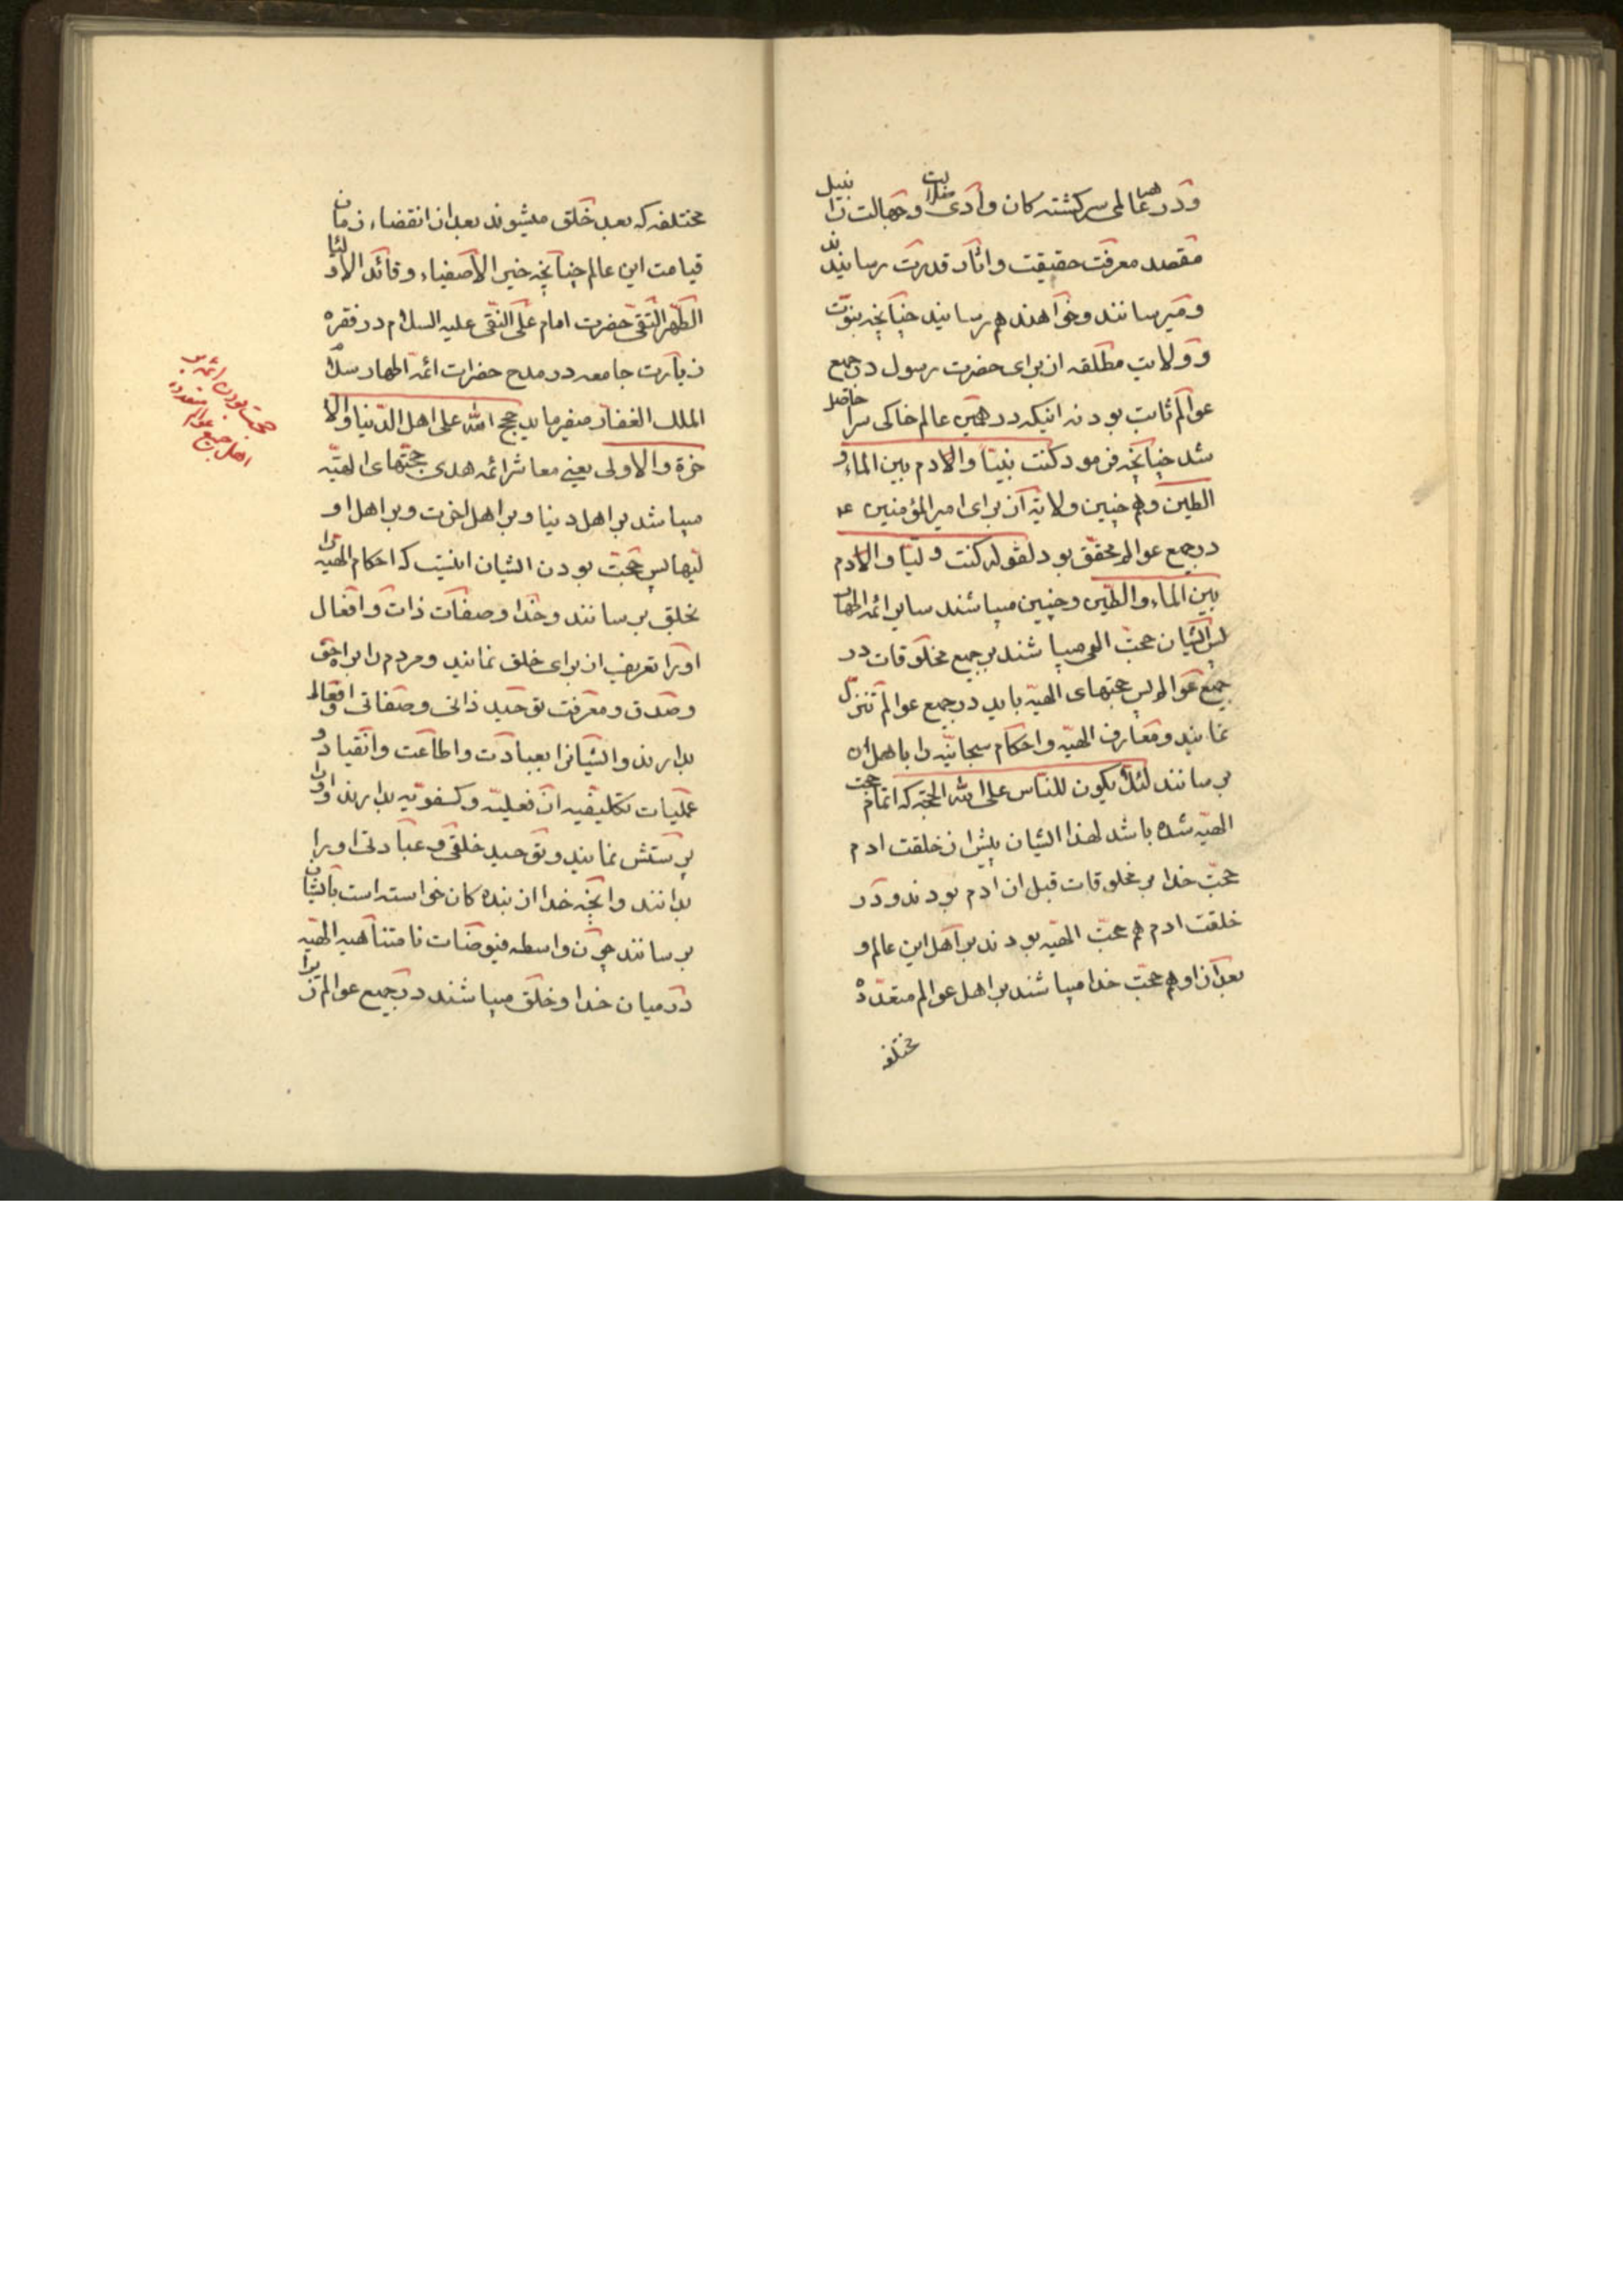 ودر هر عالمی سرکشته کان وادی ضلالت وجهالت را بنیل
مقصد معرفت حقیقت واثار قدرت رسانیدند
ومیرسانند وخواهند هم رسانید چنانچه نبوّت
وولایت مطلقه از برای حضرت رسول در جمیع
عوالم ثابت بود نه اینکه در همین عالم خاکی حاصل
شد چنانچه فرمود کنت نبیّا والادم بین الماء و
الطین وهم چنین ولایة از برای امیر المؤمنین ع
در جمع عوالم محقّق بود لقوله کنت ولیّا والادم
بین الماء والطّین وچنین میباشند سایر ائمه اطهار
پس ایشان حجّت الهی میباشند بر جمیع مخلوقات در
جمیع عوالم پس حجتهای الهیّه باید در جمیع عوالم تنزل
نمایند ومعارف الهیّه واحکام سبحانیّه را باهل ان
برسانند لئلّا یکون للناس علی الله الحجّة که اتمام حجت
الهیّه شده باشد لهذا ایشان پیش از خلقت ادم
حجّت خدا بر مخلوقات قبل از ادم بودند ودر
خلقت ادم هم حجّت الهیّه بودند بر اهل این عالم و
بعد از او هم حجّت خدا میباشند بر اهل عوالم متعدّده
مختلفه
مختلفه که بعد خلق میشوند بعد از انقضاء زمان
قیامت این عالم چنانچه خیر الاصفیاء وقائد الاولیا
الطّهر التّقی حضرت امام علی النّقی علیه السلام در فقره
زیارت جامعه در مدح حضرات ائمّه اطهار سلام
الملک الغفار میفرماید حجج الله علی اهل الدّنیا والا
خرة والاولی یعنی معاشر ائمه هدی حجّتهای الهیّه
میباشد بر اهل دنیا وبر اهل اخرت وبر اهل او
لیها پس حجّت بودن ایشان اینست که احکام الهیّه را
بخلق برسانند وخدا وصفات ذات وافعال
او را تعریف از برای خلق نمایند ومردم را براه حق
وصدق ومعرفت توحید ذاتی وصفاتی وافعالی
بدارند وایشانرا بعبادت واطاعت وانقیاد و
عملیات تکلیفیه از فعلیّه وکفویّه بدارند واورا
پرستش نمایند وتوحید خلقی وعبادتی اورا
بدانند وانچه خدا از بنده کان خواسته است بایشان
برسانند چون واسطه فیوضات نامتناهیه الهیّه
در میان خدا وخلق میباشند در جمیع عوالم زیرا
حجت بودن ائمه بر
اهل جمیع عوالم متعدده